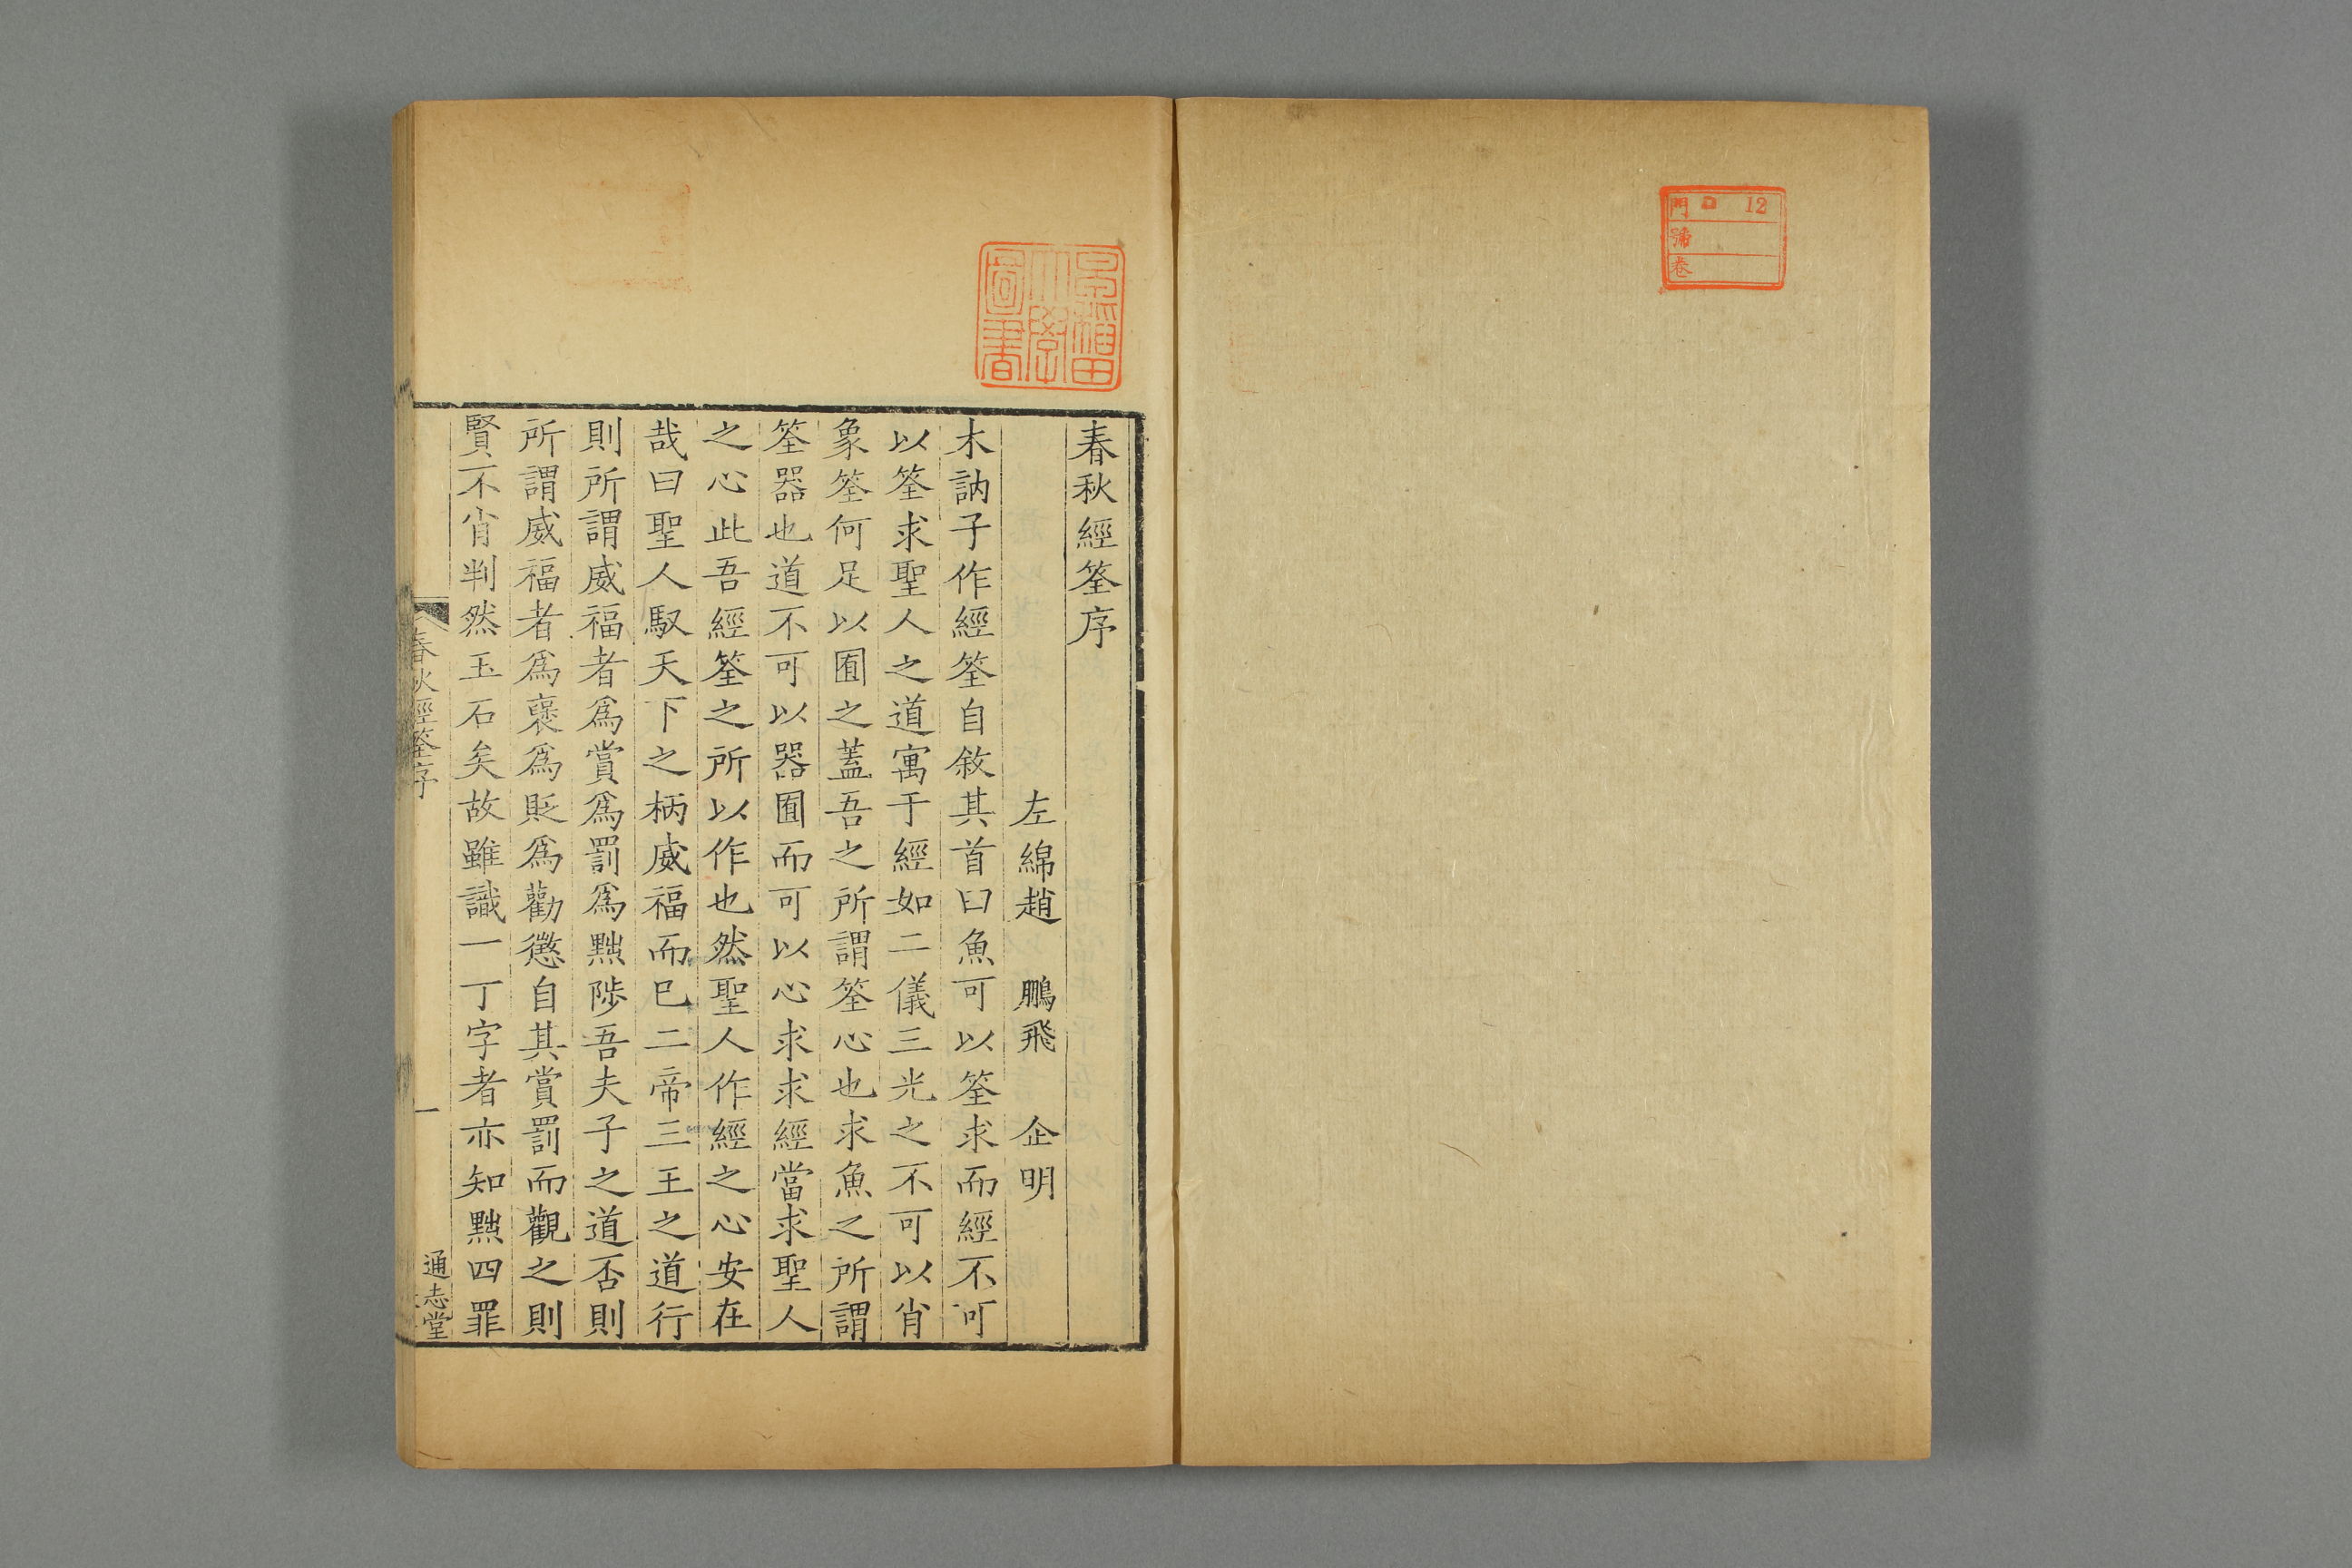 門 ロ 12
號
卷
早稲田
大學
圖書
春秋經筌序
左綿趙 鵬飛 企明
木訥子作經筌自敘其首曰魚可以筌求而經不可
以筌求聖人之道寓于經如二儀三光之不可以肖
象筌何足以囿之蓋吾之所謂筌心也求魚之所謂
筌器也道不可以器囿而可以心求求經當求聖人
之心此吾經筌之所以作也然聖人作經之心安在
哉曰聖人馭天下之柄威福而已二帝三王之道行
則所謂威福者爲賞爲罰爲黜陟吾夫子之道否則
所謂威福者爲襃爲貶爲勸懲自其賞罰而觀之則
賢不肖判然玉石矣故雖識一丁字者亦知黜四罪
春秋經筌序
一
通志堂